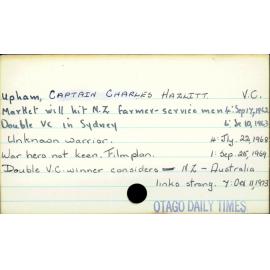 Upham, CAPTAIN CHARLES HAZLITT V.C.
Market will hit N.Z. farmer-servicemen 4: Sep 17, 1962
Double VC in Sydney 6: Se 10, 1963
Unknown warrior. 4: Jly. 22, 1968
War hero not keen. Filmplan. 1: Sep. 25, 1969
Double V.C. winner considers N.Z - Australia
links strong. 7: Oct 11, 1973
OTAGO DAILY TIMES